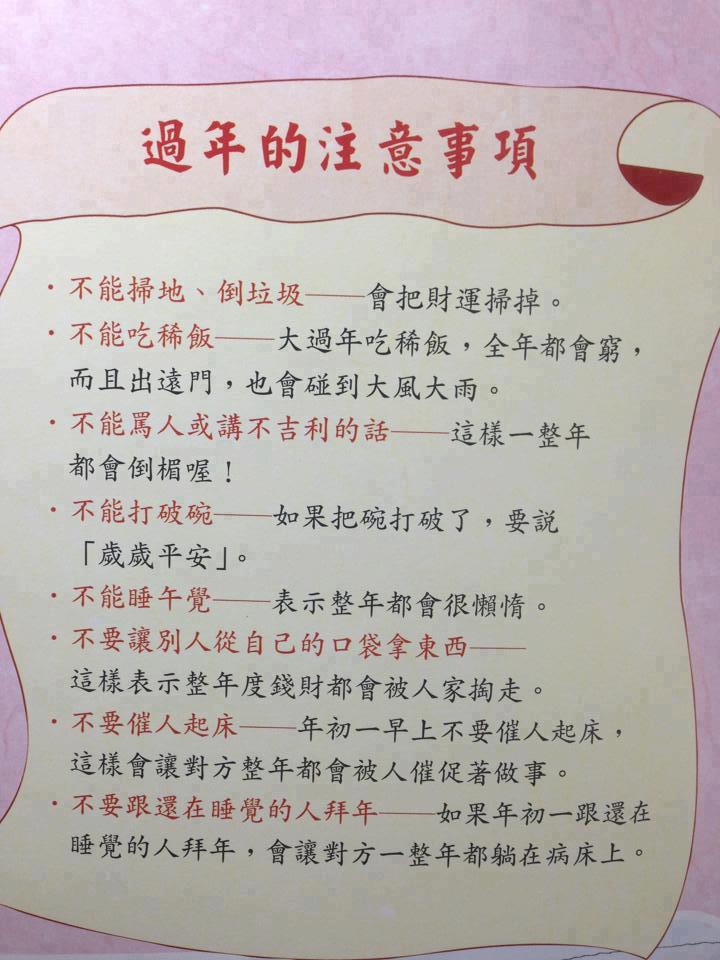 過年的注意事項
・不能掃地、倒垃圾——會把財運掃掉。
・不能吃稀飯——大過年吃稀飯，全年都會窮，
而且出遠門，也會碰到大風大雨。
・不能罵人或講不吉利的話——這樣一整年
都會倒楣喔！
・不能打破碗——如果把碗打破了，要說
「歲歲平安」。
・不能睡午覺——表示整年都會很懶惰。
・不要讓別人從自己的口袋拿東西——
這樣表示整年度錢財都會被人家掏走。
・不要催人起床——年初一早上不要催人起床，
這樣會讓對方整年都會被人催促著做事。
・不要跟還在睡覺的人拜年——如果年初一跟還在
睡覺的人拜年，會讓對方一整年都躺在病床上。